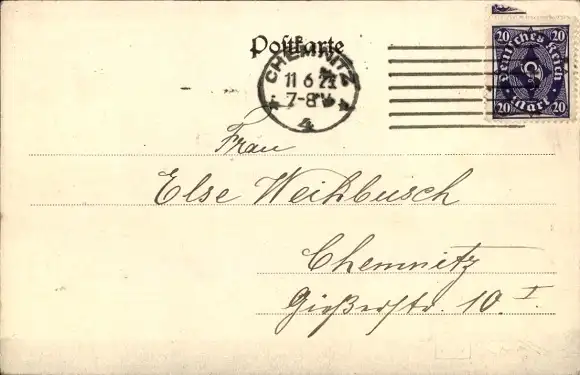 Postkarte
20 Deutsches Reich 20
20 Mark 20
CHEMNITZ
11 6 23
7-8 V
4
Frau
Else Weihbusch
Chemnitz
Gießerstr. 10 I.